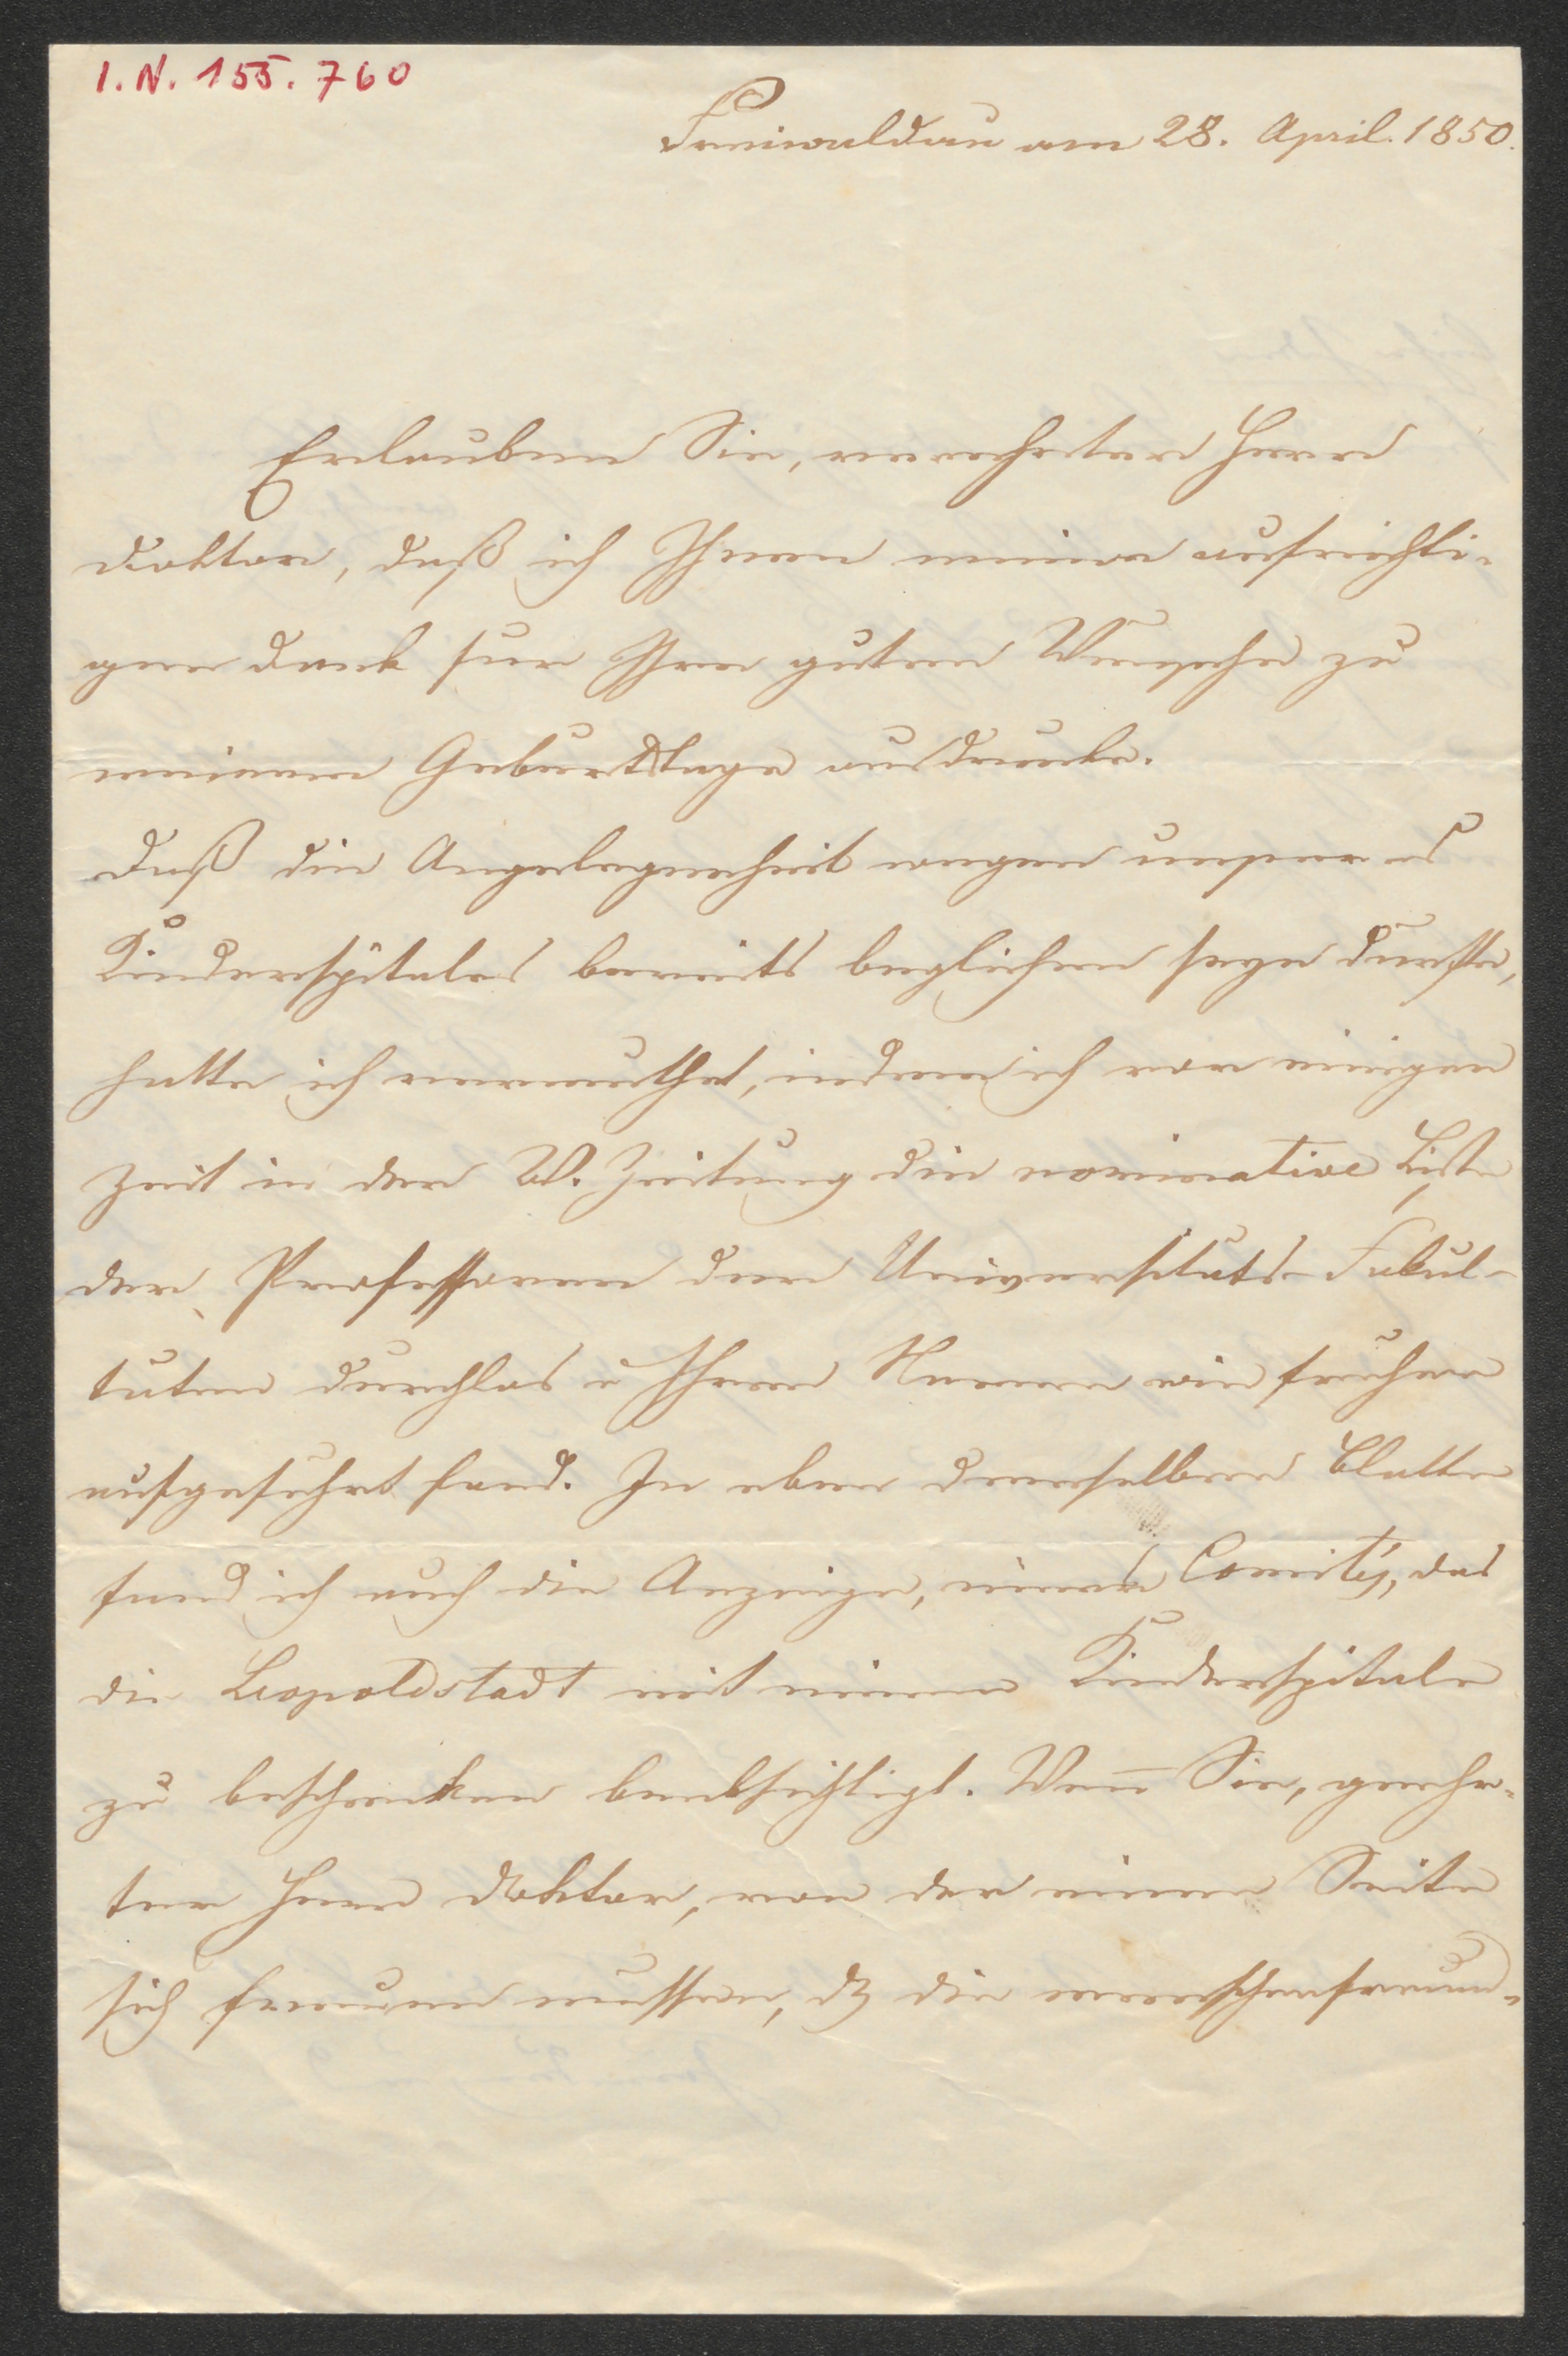 I. N. 155.760
Freiwaldau am 28. April. 1850.
Erlauben Sie, verehrter Herr
Doktor, daß ich Ihnen meinen aufrichti-
gen Dank für Ihre guten Wünsche zu
meinem Geburtstage ausdrücke.
Daß die Angelegenheit wegen unseres
Kinderspitales bereits beglichen seyn dürfte,
hatte ich vermuthet, indem ich vor einiger
Zeit in der W. Zeitung die nominative Liste
der Professoren der Universitäts-Fakul-
täten durchlas u Ihren Namen wie früher
aufgeführt fand. In eben demselben Blatte
fand ich auch die Anzeige, eines Comités, das
die Leopoldstadt mit einem Kinderspitale
zu beschenken beabsichtigt. Wen̄ Sie, geehr-
ter Herr Doktor, von der einen Seite
sich freuen müssen, dß die menschenfreun-